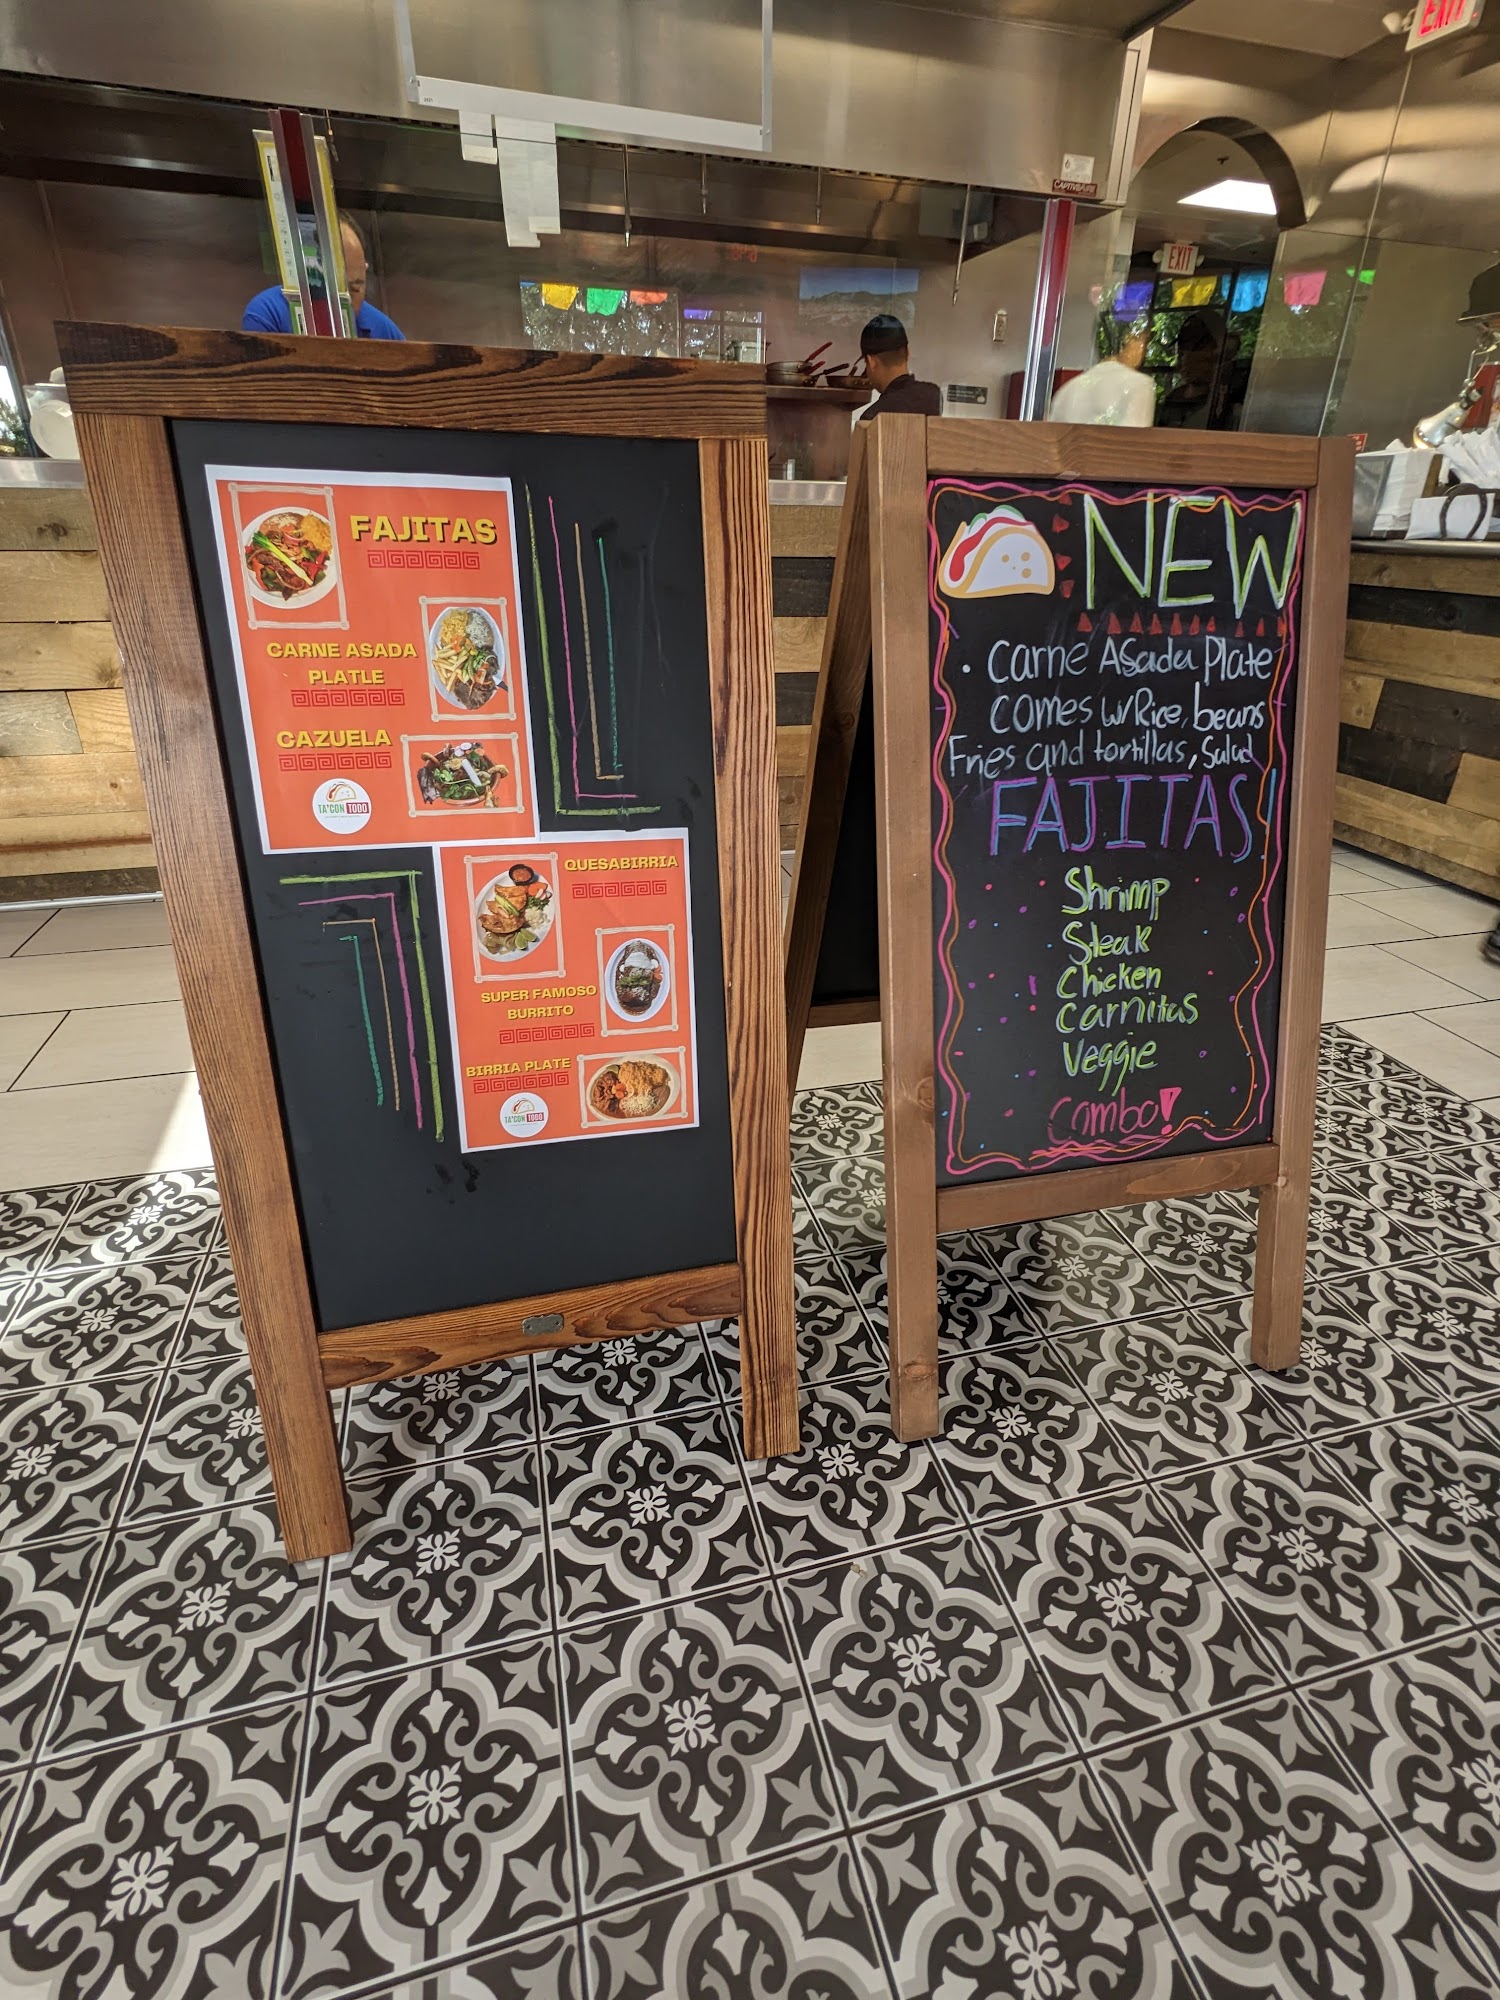 EXIT
CAPTIVEAIRE
EXIT
FAJITAS
CARNE ASADA
PLATLE
CAZUELA
TA'CON TODO
QUESABIRRIA
SUPER FAMOSO
BURRITO
BIRRIA PLATE
TA'CON TODO
NEW
• Carne Asada Plate
comes w/Rice, beans
Fries and tortillas, Salad
FAJITAS
Shrimp
Steak
Chicken
Carnitas
Veggie
Combo!